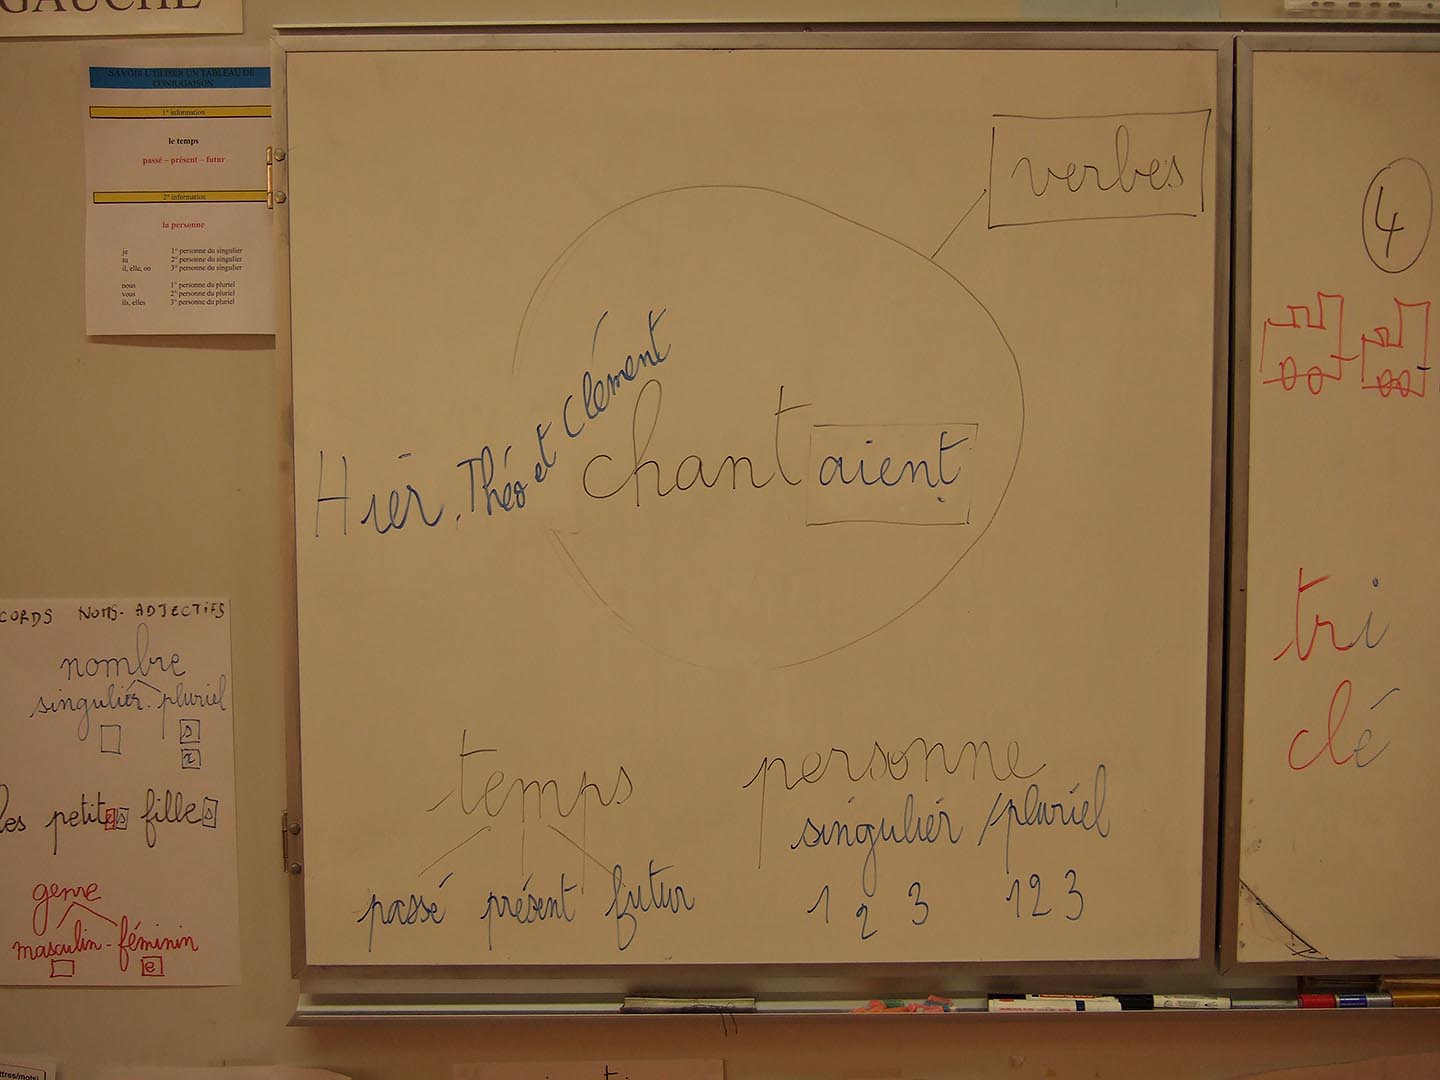 GAUCHE
SAVOIR UTILISER UN TABLEAU DE
CONJUGAISON
1° information
le temps
passé – présent – futur
2° information
la personne
je 1° personne du singulier
tu 2° personne du singulier
il, elle, on 3° personne du singulier
nous 1° personne du pluriel
vous 2° personne du pluriel
ils, elles 3° personne du pluriel
CORDS NOMS-ADJECTIFS
nombre
singulier - pluriel
s
x
les petites filles
genre
masculin - féminin
e
verbes
Hier, Théo et Clément chantaient
temps
passé présent futur
personne
singulier / pluriel
1 2 3 1 2 3
4
tri
clé